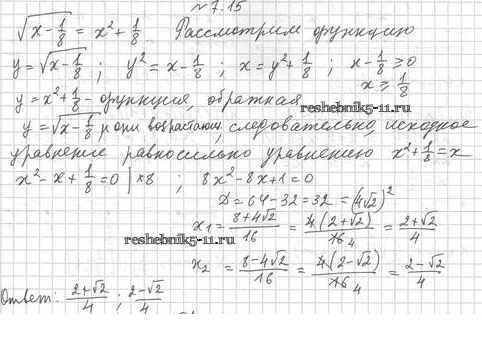 №7.15
√(x - 1/8) = x² + 1/8. Рассмотрим функцию
y = √(x - 1/8) ; y² = x - 1/8 ; x = y² + 1/8 ; x - 1/8 ≥ 0
x ≥ 1/8
y = x² + 1/8 - функция, обратная
reshebnik5-11.ru
y = √(x - 1/8) и они возрастающ, следовательно, исходное
уравнение равносильно уравнению x² + 1/8 = x
x² - x + 1/8 = 0 | *8 ; 8x² - 8x + 1 = 0
D = 64 - 32 = 32 = (4√2)²
x₁ = (8 + 4√2)/16 = 4(2 + √2)/16 4 = (2 + √2)/4
reshebnik5-11.ru
x₂ = (8 - 4√2)/16 = 4(2 - √2)/16 4 = (2 - √2)/4
Ответ: (2 + √2)/4 ; (2 - √2)/4